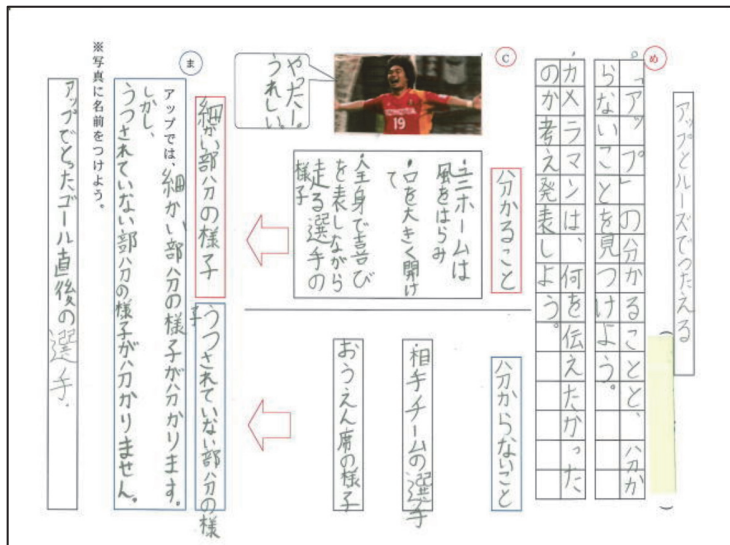 アップとルーズでつたえる
（　）
め
。「アップ」の分かることと、分か
らないことを見つけよう。
・カメラマンは、何を伝えたかった
のか考え発表しよう。
C
やったー。
うれしい。
TOYOTA
19
分かること
・ユニホームは
風をはらみ
・口を大きく開け
て
・全身で喜び
を表しながら
走る選手の
様子
分からないこと
・相手チームの選手
おうえん席の様子
細かい部分の様子
うつされていない部分の様
子
ま
アップでは、細かい部分の様子が分かります。
しかし、
うつされていない部分の様子が分かりません。
※写真に名前をつけよう。
アップでとったゴール直後の選手.